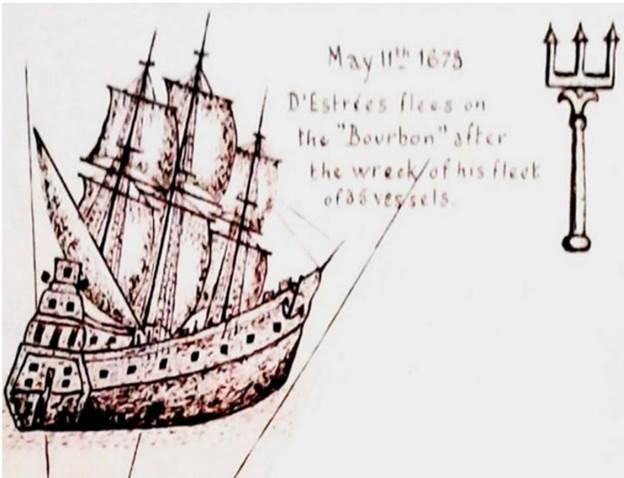 May 11th 1678
D'Estrées flees on
the "Bourbon" after
the wreck of his fleet
of 35 vessels.